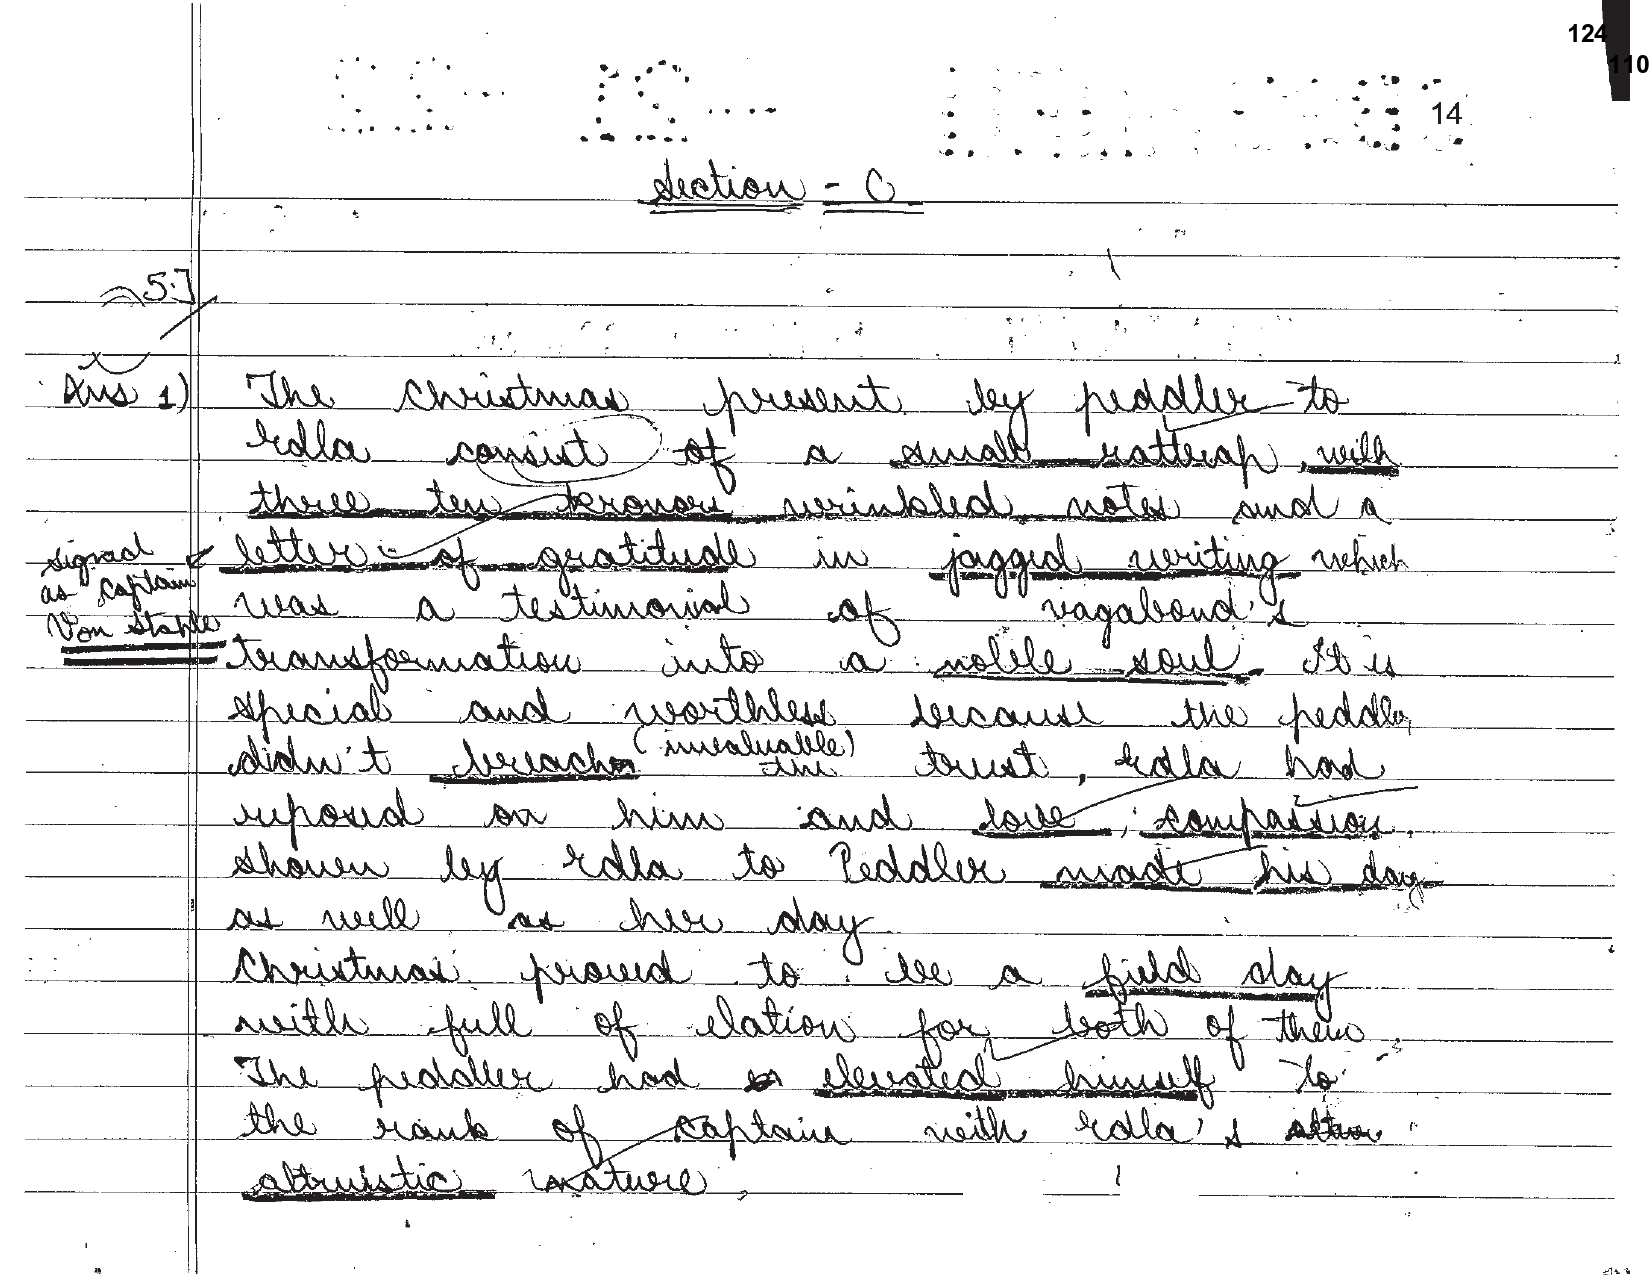 124
110
14
Section - C
5.]
Ans 1) The Christmas present by peddler to
Edla consist of a small rattrap, with
three ten kronors wrinkled notes and a
letter of gratitude in jagged writing which
signed
as Captain
Von Stahle
was a testimonial of vagabond's
transformation into a noble soul. It is
special and worthless because the peddler
(invaluable)
didn't breach the trust, Edla had
reposed on him and love, compassion,
shown by Edla to Peddler made his day
as well as her day
Christmas proved to be a field day
with full of elation for both of them
The peddler had elevated himself to
the rank of Captain with Edla's
altruistic nature,